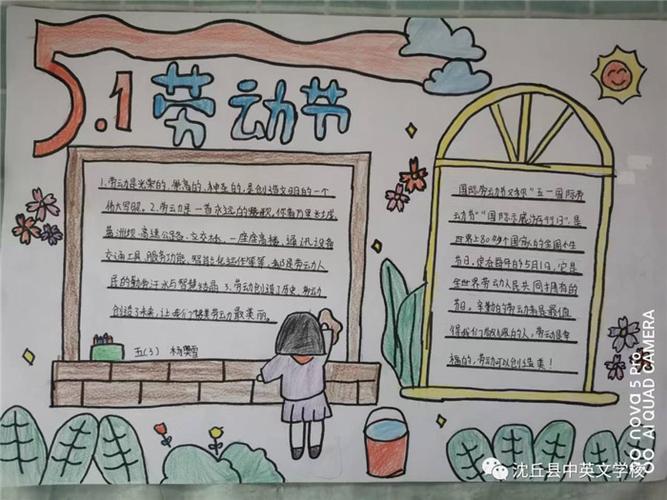 5.1 劳动节
1.劳动是光荣的,崇高的,神圣的,是创造文明的一个
伟大写照。2.劳动是一首永远的
高速公路、立交桥、一座座高楼、通讯设备
交通工具、服务功能、智能化运作等等,都是劳动人
民的勤劳汗水与智慧结晶 3.劳动创造了历史,劳动
创造了未来,让我们
劳动最美丽。
五(3) 杨
雪
国际劳动节又称"五一国际劳
动节""国际示威游行日",是
世界上80多个国家的全国性
节日,定在每年的5月1日,它是
全世界劳动人民共同拥有的
节日。辛勤的劳动者是最值
得我们
的人,劳动是幸
福的,劳动可以创造美!
nova 5 Pro
AI QUAD CAMERA
沈丘县中英文学校